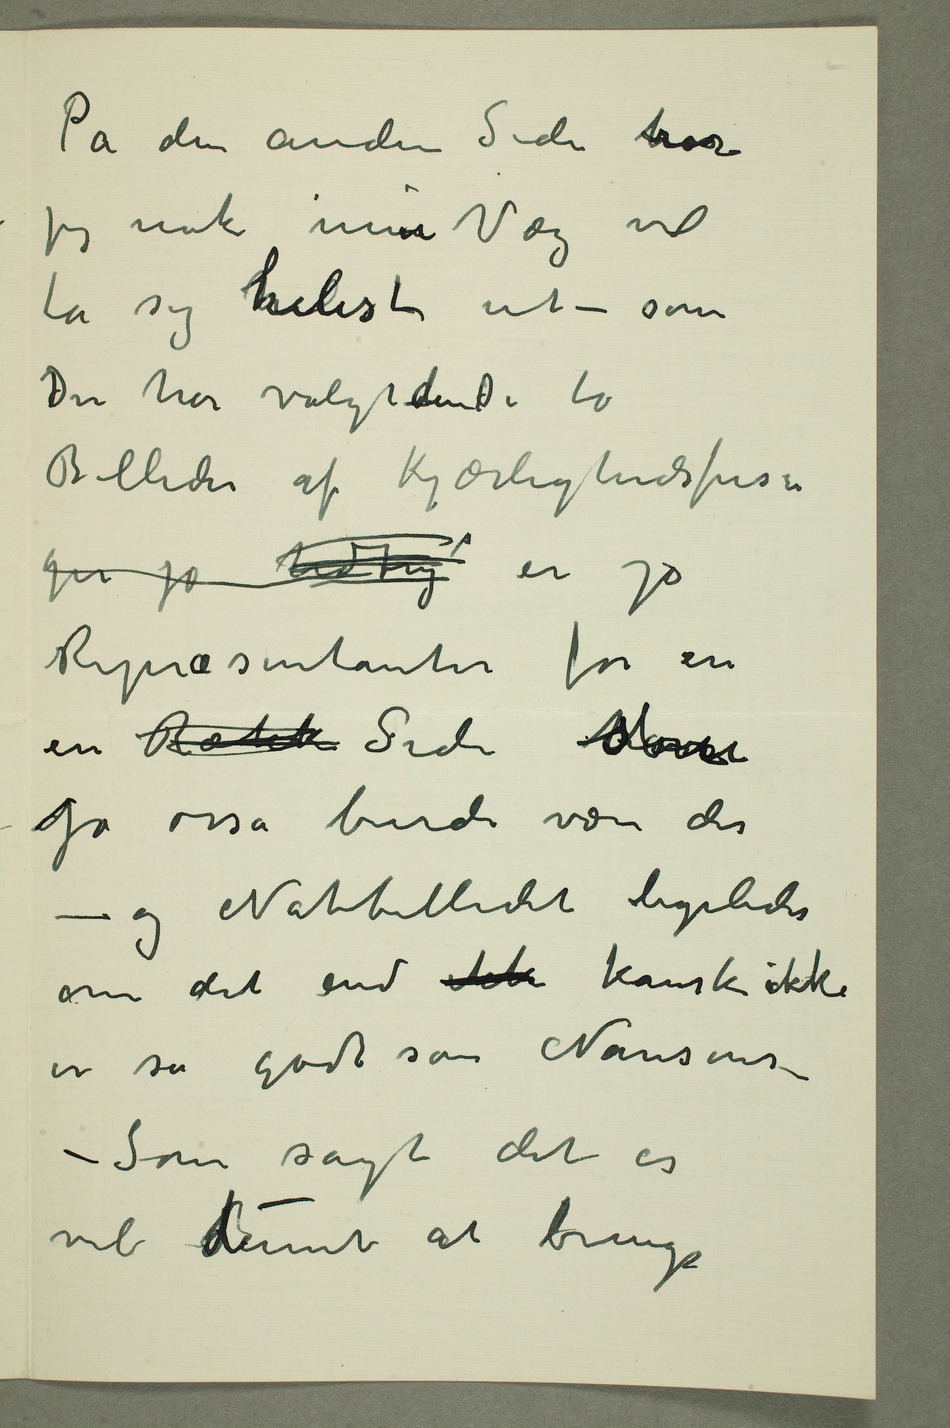 På den anden Side har
jeg nok min Væg vil
ta sig helest ut – som
De har valgt den De to
Billeder af Kjærlighedsfrise
gir jo er jo
Repræsentanter for en
en Række Side
Jo også burde være der
– og Natbilledet ligeledes
om det end ikke kanske ikke
er så godt som Nansens –
– Som sagt det er
vel dumt at bringe